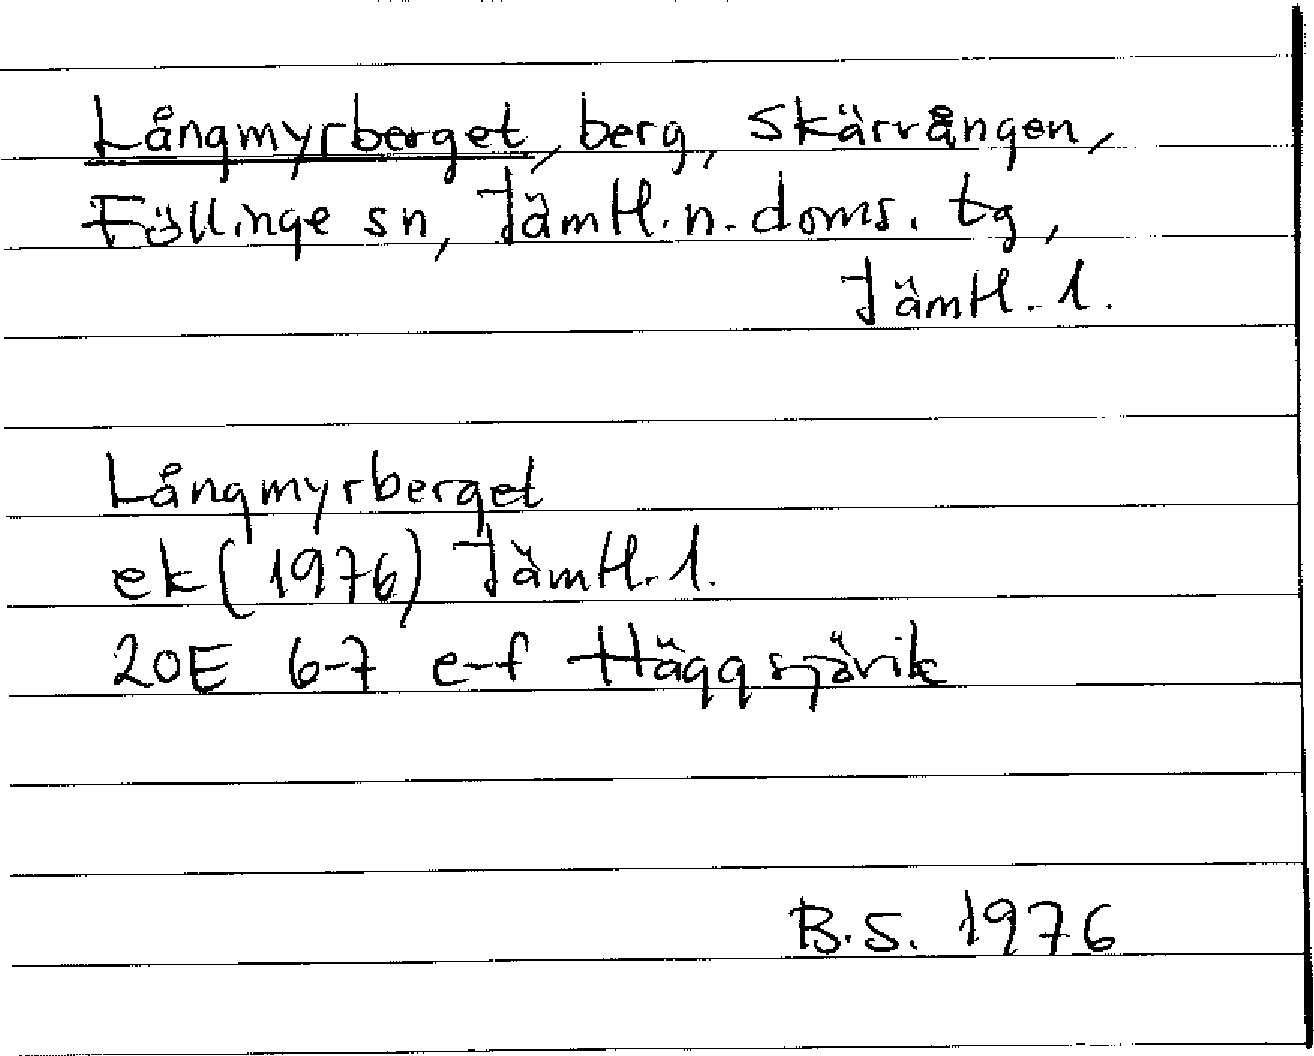 Långmyrberget, berg, Skärvången,
Föllinge sn, Jämtl. n. doms. tg,
Jämtl. l.
Långmyrberget
ek (1976) Jämtl. l.
20E 6-7 e-f Häggsjövik
B.S. 1976